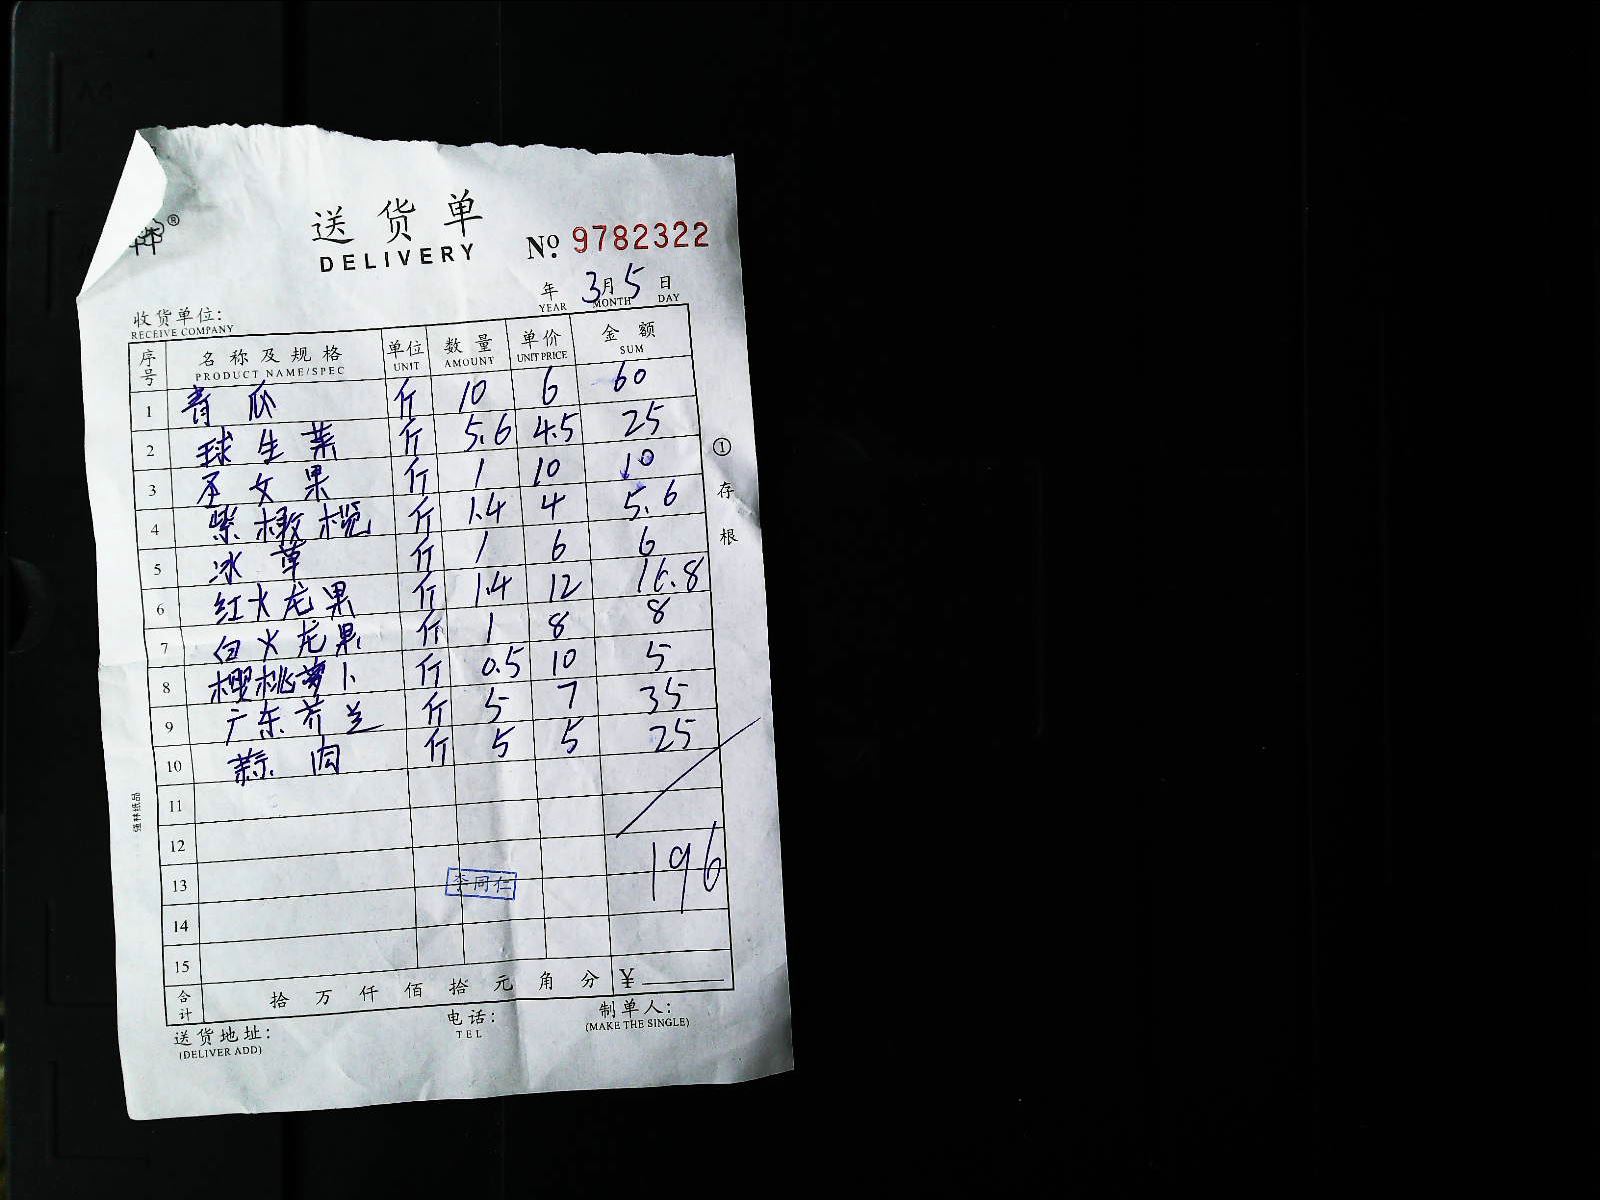 送货单
DELIVERY
No. 9782322
年 3月 5日
YEAR MONTH DAY
收货单位:
RECEIVE COMPANY
序号 名称及规格 单位 数量 单价 金额
PRODUCT NAME/SPEC UNIT AMOUNT UNIT PRICE SUM
1 青瓜 斤 10 6 60
2 球生菜 斤 5.6 4.5 25
3 圣女果 斤 1 10 10
4 紫橄榄 斤 1.4 4 5.6
5 冰草 斤 1 6 6
6 红火龙果 斤 1.4 12 16.8
7 白火龙果 斤 1 8 8
8 樱桃萝卜 斤 0.5 10 5
9 广东芥兰 斤 5 7 35
10 蒜肉 斤 5 5 25
11
12
13 李同仁 196
14
15
合计 拾 万 仟 佰 拾 元 角 分 ¥
送货地址: 电话: 制单人:
(DELIVER ADD) TEL (MAKE THE SINGLE)
①存根
强林纸品